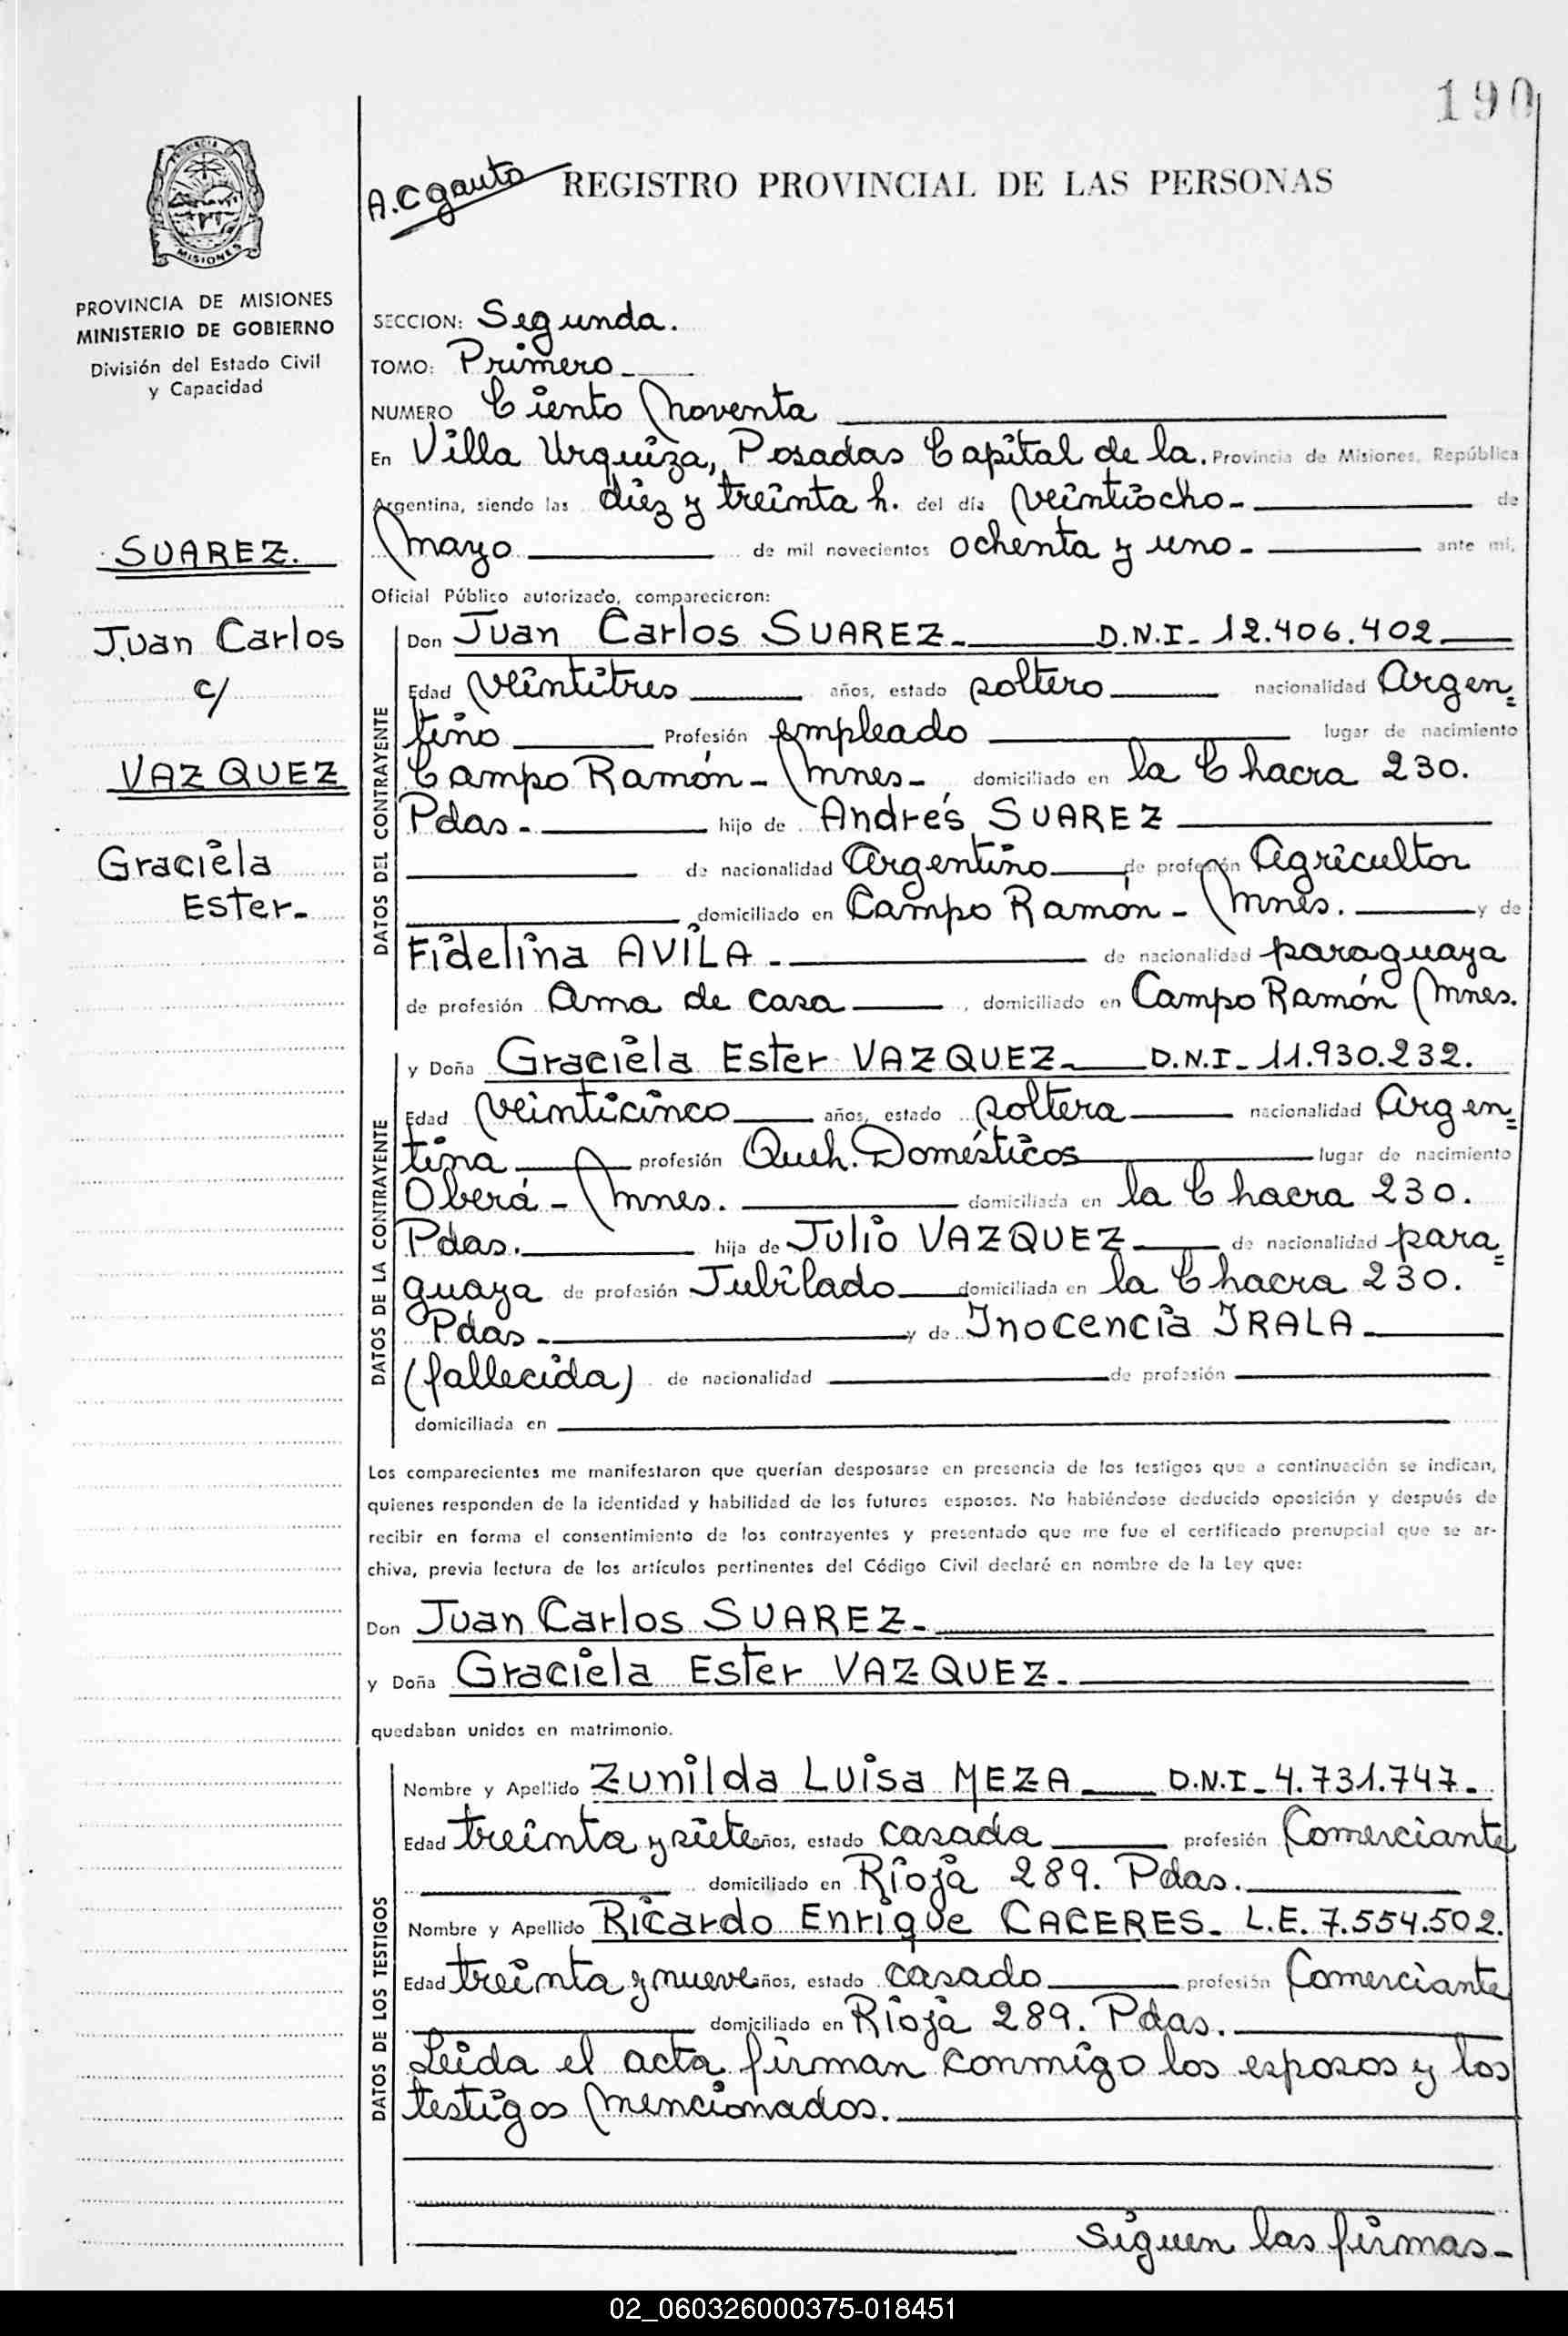 190
A.C gauto
REGISTRO PROVINCIAL DE LAS PERSONAS
PROVINCIA
MISIONES
PROVINCIA DE MISIONES
MINISTERIO DE GOBIERNO
División del Estado Civil
y Capacidad
SUAREZ.
Juan Carlos
c/
VAZQUEZ
Graciela
Ester-
SECCION: Segunda.
TOMO: Primero-
NUMERO Ciento Noventa
En Villa Urquiza, Posadas Capital de la. Provincia de Misiones, República
Argentina, siendo las diez y treinta h. del día veintiocho- de
Mayo de mil novecientos ochenta y uno- ante mi,
Oficial Público autorizado, comparecieron:
DATOS DEL CONTRAYENTE
Don Juan Carlos SUAREZ- D.N.I- 12.406.402
Edad Veintitres años, estado soltero nacionalidad Argen=
tino Profesión empleado lugar de nacimiento
Campo Ramón - Mnes- domiciliado en la Chacra 230.
Pdas- hijo de Andrés SUAREZ
de nacionalidad Argentino de profesión Agricultor
domiciliado en Campo Ramón - Mnes. y de
Fidelina AVILA- de nacionalidad paraguaya
de profesión Ama de casa, domiciliado en Campo Ramón Mnes.
DATOS DE LA CONTRAYENTE
y Doña Graciela Ester VAZQUEZ- D.N.I- 11.930.232.
Edad Veinticinco años, estado soltera nacionalidad Argen=
tina profesión Queh. Domésticos lugar de nacimiento
Oberá - Mnes. domiciliada en la Chacra 230.
Pdas. hija de Julio VAZQUEZ de nacionalidad para=
guaya de profesión Jubilado domiciliada en la Chacra 230.
Pdas- y de Inocencia IRALA-
(fallecida) de nacionalidad de profesión
domiciliada en
Los comparecientes me manifestaron que querían desposarse en presencia de los testigos que a continuación se indican,
quienes responden de la identidad y habilidad de los futuros esposos. No habiéndose deducido oposición y después de
recibir en forma el consentimiento de los contrayentes y presentado que me fue el certificado prenupcial que se ar-
chiva, previa lectura de los artículos pertinentes del Código Civil declaré en nombre de la Ley que:
Don Juan Carlos SUAREZ-
y Doña Graciela Ester VAZQUEZ-
quedaban unidos en matrimonio.
DATOS DE LOS TESTIGOS
Nombre y Apellido Zunilda Luisa MEZA D.N.I- 4.731.747-
Edad treinta y siete años, estado casada profesión Comerciante
domiciliado en Rioja 289. Pdas.
Nombre y Apellido Ricardo Enrique CACERES- L.E. 7.554.502.
Edad treinta y nueve años, estado casado profesión Comerciante
domiciliado en Rioja 289. Pdas.
Leida el acta firman conmigo los esposos y los
testigos mencionados.
Siguen las firmas-
02_060326000375-018451